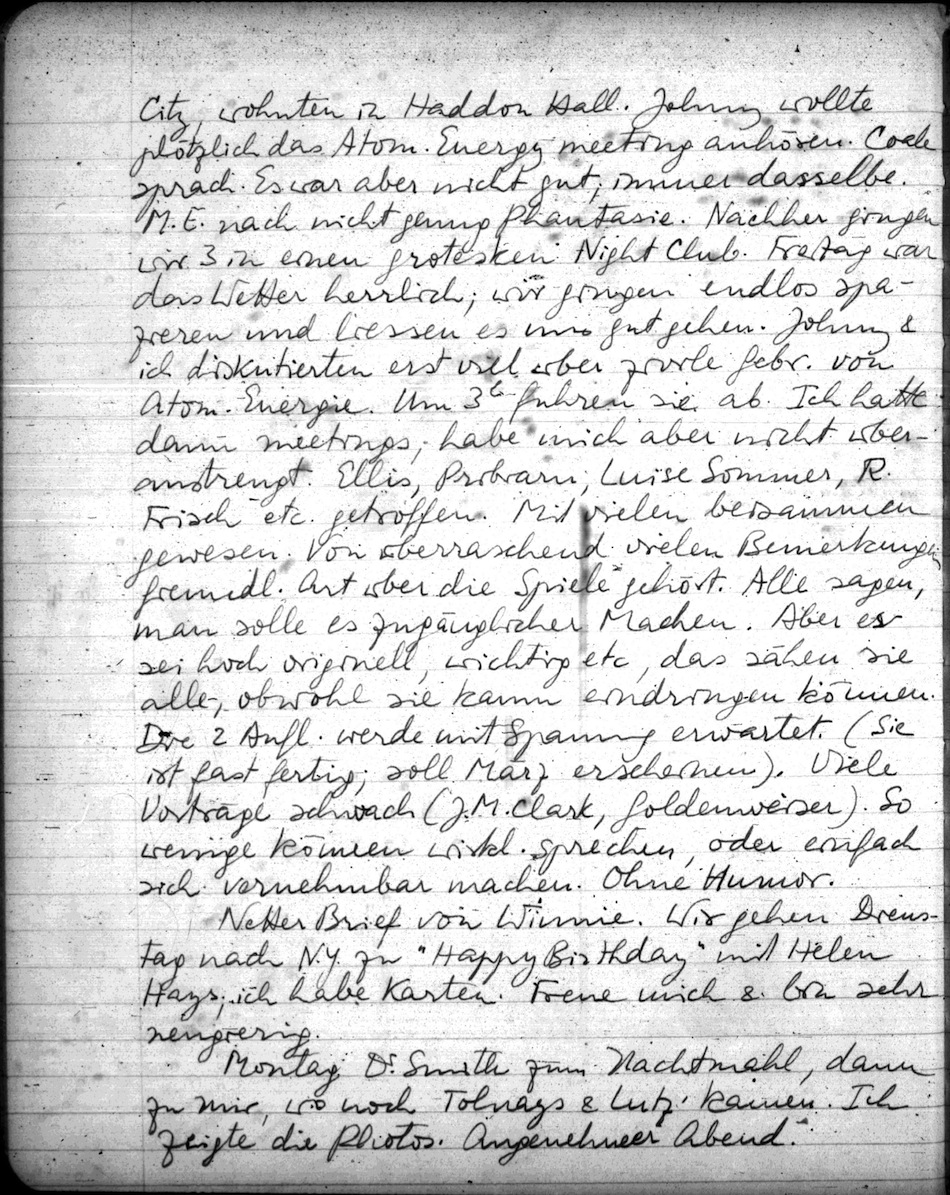 City, wohnten in Haddon Hall. Johnny wollte
plötzlich das Atom. Energy meeting anhören. Coale
sprach. Es war aber nicht gut, immer dasselbe.
M.E. nach nicht genug Phantasie. Nachher gingen
wir 3 in einen grotesken Night Club. Freitag war
das Wetter herrlich; wir gingen endlos spa-
zieren und liessen es uns gut gehen. Johnny &
ich diskutierten erst viel über zivile Gebr. von
Atom. Energie. Um 3h fuhren sie ab. Ich hatte
dann meetings, habe mich aber nicht über-
anstrengt. Ellis, Pribram, Luise Sommer, R.
Frisch etc. getroffen. Mit vielen beisammen
gewesen. Von überraschend vielen Bemerkungen
freundl. Art über die "Spiele" gehört. Alle sagen,
man solle es zugänglicher Machen. Aber es
sei hoch originell, wichtig etc, das sähen sie
alle, obwohl sie kaum eindringen können.
Die 2 Aufl. werde mit Spannung erwartet. (Sie
ist fast fertig; soll März erscheinen). Viele
Vorträge schwach (J.M. Clark, Goldenweiser). So
wenige können wirkl. sprechen, oder einfach
sich vernehmbar machen. Ohne Humor.
Netter Brief von Winnie. Wir gehen Diens-
tag nach N.Y. zu "Happy Birthday" mit Helen
Hays; ich habe Karten. Freue mich & bin sehr
neugierig.
Montag Dr. Smith zum Nachtmahl, dann
zu mir, wo noch Tolnays & Lutz kamen. Ich
zeigte die Photos. Angenehmer Abend.